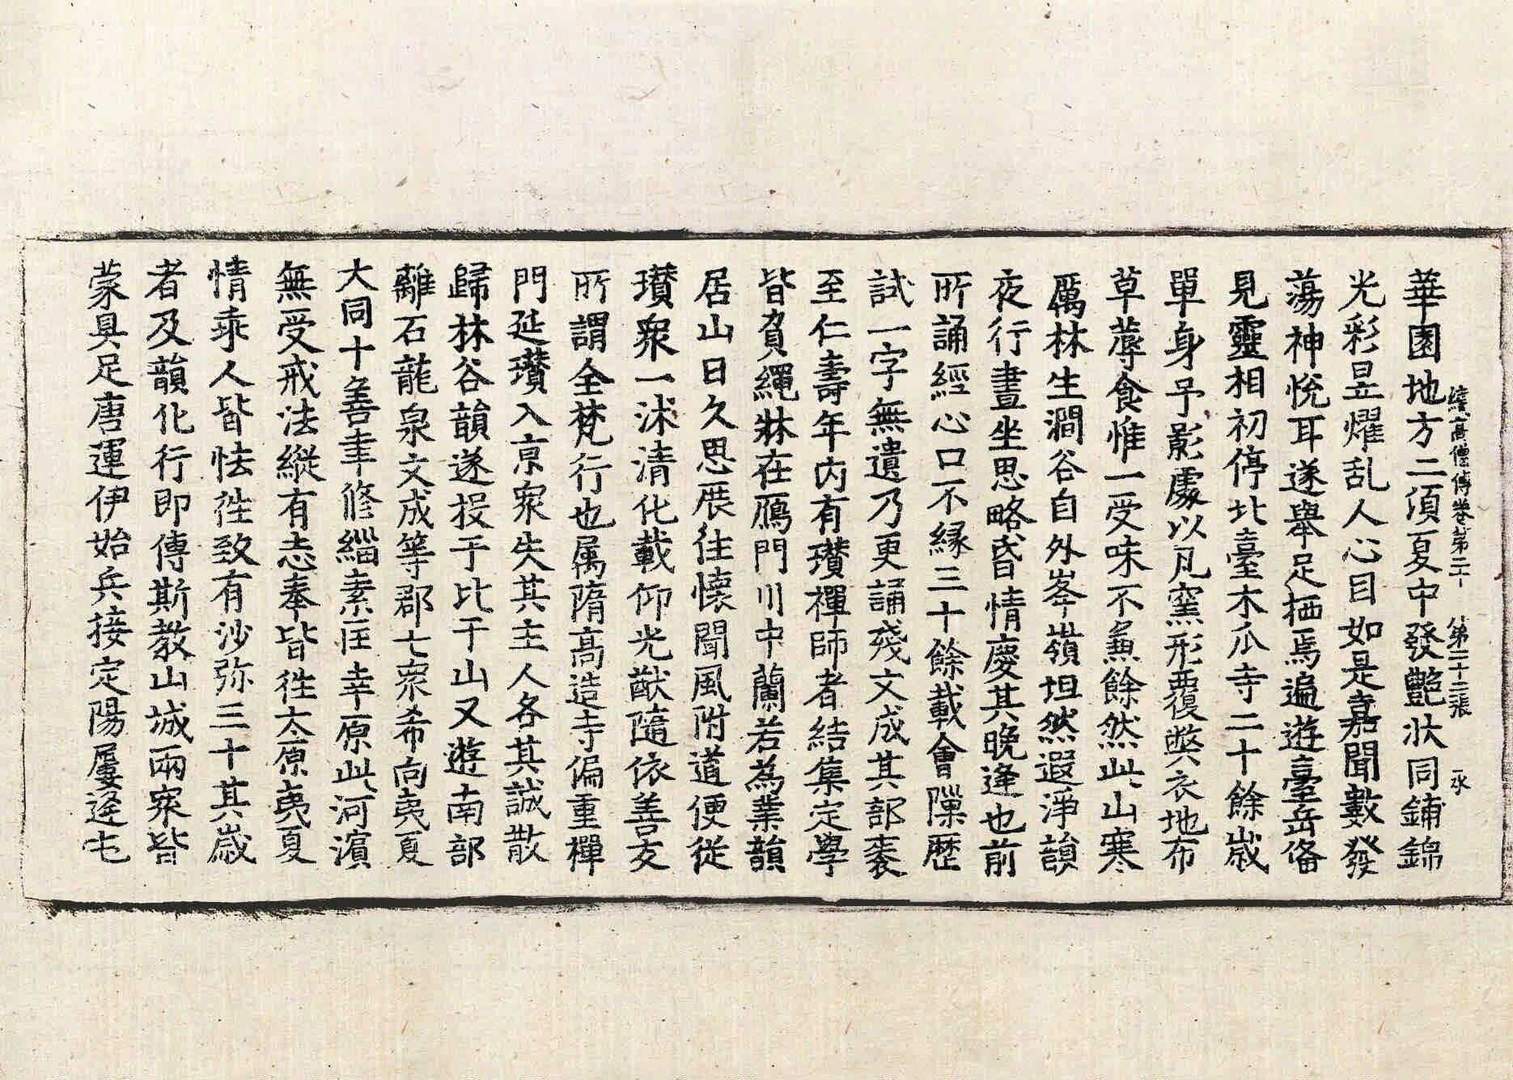 續高僧傳卷第二十 第二十二張 承
華園地方二頃夏中發艶狀同鋪錦
光彩昱耀乱人心目如是嘉聞數發
蕩神悅耳遂舉足栖焉遍遊臺岳俻
見靈相初停北臺木瓜寺二十餘歲
單身予影處以凡窯形覆弊衣地布
草蓐食惟一受味不兼餘然此山寒
厲林生澗谷自外峯嶺坦然遐淨韻
夜行晝坐思略昏情慶其晚逢也前
所誦經心口不緣三十餘載會隟歷
試一字無遺乃更誦殘文成其部袠
至仁壽年內有瓚禪師者結集定學
皆負繩牀在鴈門川中蘭若為業韻
居山日久思展往懷聞風附道便從
瓚衆一沭清化載仰光猷隨依善友
所謂全梵行也属隋高造寺偏重禪
門延瓚入京衆失其主人各其誠散
歸林谷韻遂投于比干山又遊南部
離石龍泉文成等郡七衆希向夷夏
大同十善聿修緇素匡幸原此河濵
無受戒法縱有志奉皆徃太原夷夏
情乖人皆怯徃致有沙弥三十其歲
者及韻化行即傳斯教山城兩衆皆
蒙具足唐運伊始兵接定陽屢逢屯